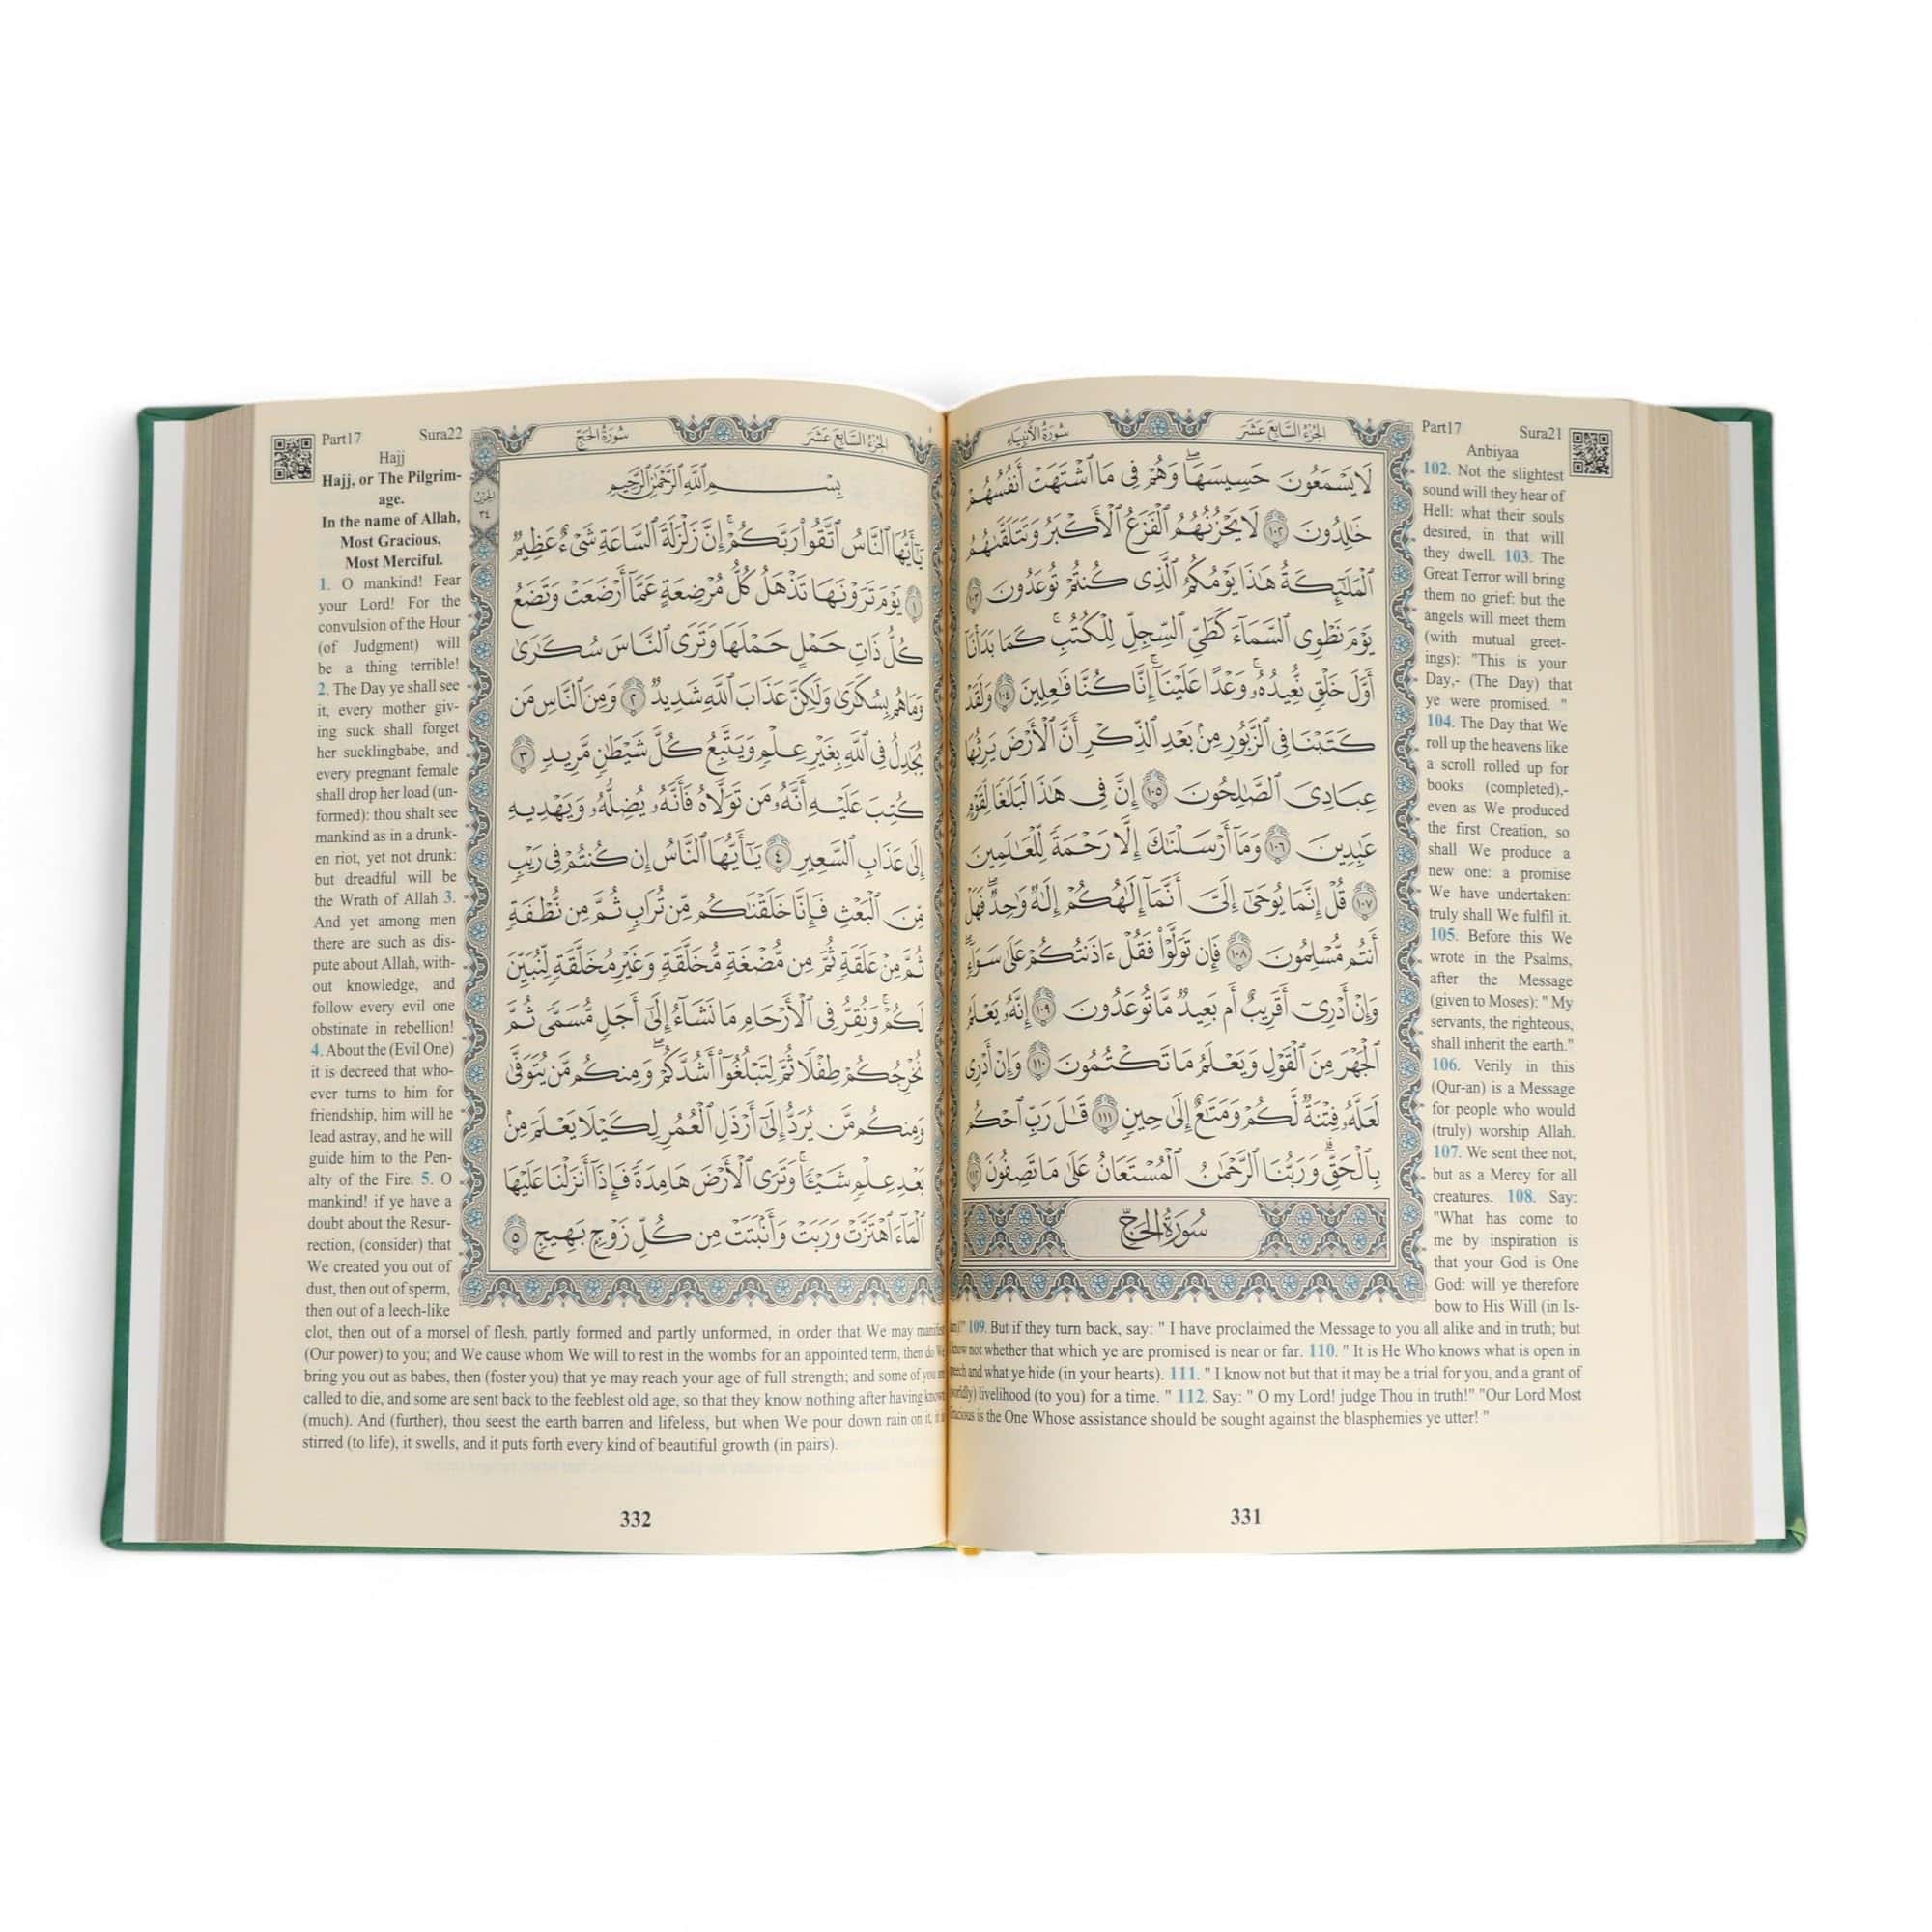 الجزء السابع عشر
سورة الأنبياء
لَا يَسْمَعُونَ حَسِيسَهَا ۖ وَهُمْ فِي مَا اشْتَهَتْ أَنفُسُهُمْ
خَٰلِدُونَ ١٠٢ لَا يَحْزُنُهُمُ الْفَزَعُ الْأَكْبَرُ وَتَتَلَقَّىٰهُمُ
الْمَلَٰٓئِكَةُ هَٰذَا يَوْمُكُمُ الَّذِي كُنتُمْ تُوعَدُونَ ١٠٣
يَوْمَ نَطْوِي السَّمَآءَ كَطَيِّ السِّجِلِّ لِلْكُتُبِ ۚ كَمَا بَدَأْنَآ
أَوَّلَ خَلْقٍ نُّعِيدُهُۥ ۚ وَعْدًا عَلَيْنَآ ۚ إِنَّا كُنَّا فَٰعِلِينَ ١٠٤ وَلَقَدْ
كَتَبْنَا فِي الزَّبُورِ مِنۢ بَعْدِ الذِّكْرِ أَنَّ الْأَرْضَ يَرِثُهَا
عِبَادِيَ الصَّٰلِحُونَ ١٠٥ إِنَّ فِي هَٰذَا لَبَلَٰغًا لِّقَوْمٍ
عَٰبِدِينَ ١٠٦ وَمَآ أَرْسَلْنَٰكَ إِلَّا رَحْمَةً لِّلْعَٰلَمِينَ
١٠٧ قُلْ إِنَّمَا يُوحَىٰٓ إِلَيَّ أَنَّمَآ إِلَٰهُكُمْ إِلَٰهٌ وَٰحِدٌ ۖ فَهَلْ
أَنتُم مُّسْلِمُونَ ١٠٨ فَإِن تَوَلَّوْا فَقُلْ ءَاذَنتُكُمْ عَلَىٰ سَوَآءٍ ۖ
وَإِنْ أَدْرِيٓ أَقَرِيبٌ أَم بَعِيدٌ مَّا تُوعَدُونَ ١٠٩ إِنَّهُۥ يَعْلَمُ
الْجَهْرَ مِنَ الْقَوْلِ وَيَعْلَمُ مَا تَكْتُمُونَ ١١٠ وَإِنْ أَدْرِي
لَعَلَّهُۥ فِتْنَةٌ لَّكُمْ وَمَتَٰعٌ إِلَىٰ حِينٍ ١١١ قَٰلَ رَبِّ احْكُم
بِالْحَقِّ ۗ وَرَبُّنَا الرَّحْمَٰنُ الْمُسْتَعَانُ عَلَىٰ مَا تَصِفُونَ ١١٢
سُورَةُ الحَجّ
Part17 Sura21
Anbiyaa
102. Not the slightest
sound will they hear of
Hell: what their souls
desired, in that will
they dwell. 103. The
Great Terror will bring
them no grief: but the
angels will meet them
(with mutual greet-
ings): "This is your
Day,- (The Day) that
ye were promised. "
104. The Day that We
roll up the heavens like
a scroll rolled up for
books (completed),-
even as We produced
the first Creation, so
shall We produce a
new one: a promise
We have undertaken:
truly shall We fulfil it.
105. Before this We
wrote in the Psalms,
after the Message
(given to Moses): " My
servants, the righteous,
shall inherit the earth."
106. Verily in this
(Qur-an) is a Message
for people who would
(truly) worship Allah.
107. We sent thee not,
but as a Mercy for all
creatures. 108. Say:
"What has come to
me by inspiration is
that your God is One
God: will ye therefore
bow to His Will (in Is-
109. But if they turn back, say: " I have proclaimed the Message to you all alike and in truth; but
know not whether that which ye are promised is near or far. 110. " It is He Who knows what is open in
and what ye hide (in your hearts). 111. " I know not but that it may be a trial for you, and a grant of
livelihood (to you) for a time. " 112. Say: " O my Lord! judge Thou in truth!" "Our Lord Most
is the One Whose assistance should be sought against the blasphemies ye utter! "
331
الجزء السابع عشر
سورة الحج
بِسْمِ اللَّهِ الرَّحْمَٰنِ الرَّحِيمِ
يَٰٓأَيُّهَا النَّاسُ اتَّقُوا رَبَّكُمْ ۚ إِنَّ زَلْزَلَةَ السَّاعَةِ شَيْءٌ عَظِيمٌ
١ يَوْمَ تَرَوْنَهَا تَذْهَلُ كُلُّ مُرْضِعَةٍ عَمَّآ أَرْضَعَتْ وَتَضَعُ
كُلُّ ذَاتِ حَمْلٍ حَمْلَهَا وَتَرَى النَّاسَ سُكَٰرَىٰ
وَمَا هُم بِسُكَٰرَىٰ وَلَٰكِنَّ عَذَابَ اللَّهِ شَدِيدٌ ٢ وَمِنَ النَّاسِ مَن
يُجَٰدِلُ فِي اللَّهِ بِغَيْرِ عِلْمٍ وَيَتَّبِعُ كُلَّ شَيْطَٰنٍ مَّرِيدٍ ٣
كُتِبَ عَلَيْهِ أَنَّهُۥ مَن تَوَلَّاهُ فَأَنَّهُۥ يُضِلُّهُۥ وَيَهْدِيهِ
إِلَىٰ عَذَابِ السَّعِيرِ ٤ يَٰٓأَيُّهَا النَّاسُ إِن كُنتُمْ فِي رَيْبٍ
مِّنَ الْبَعْثِ فَإِنَّا خَلَقْنَٰكُم مِّن تُرَابٍ ثُمَّ مِن نُّطْفَةٍ
ثُمَّ مِنْ عَلَقَةٍ ثُمَّ مِن مُّضْغَةٍ مُّخَلَّقَةٍ وَغَيْرِ مُخَلَّقَةٍ لِّنُبَيِّنَ
لَكُمْ ۚ وَنُقِرُّ فِي الْأَرْحَامِ مَا نَشَآءُ إِلَىٰٓ أَجَلٍ مُّسَمًّى ثُمَّ
نُخْرِجُكُمْ طِفْلًا ثُمَّ لِتَبْلُغُوٓا أَشُدَّكُمْ ۖ وَمِنكُم مَّن يُتَوَفَّىٰ
وَمِنكُم مَّن يُرَدُّ إِلَىٰٓ أَرْذَلِ الْعُمُرِ لِكَيْلَا يَعْلَمَ مِنۢ
بَعْدِ عِلْمٍ شَيْـًٔا ۚ وَتَرَى الْأَرْضَ هَامِدَةً فَإِذَآ أَنزَلْنَا عَلَيْهَا
الْمَآءَ اهْتَزَّتْ وَرَبَتْ وَأَنۢبَتَتْ مِن كُلِّ زَوْجٍۭ بَهِيجٍ ٥
الحزب
٣٤
Part17 Sura22
Hajj
Hajj, or The Pilgrim-
age.
In the name of Allah,
Most Gracious,
Most Merciful.
1. O mankind! Fear
your Lord! For the
convulsion of the Hour
(of Judgment) will
be a thing terrible!
2. The Day ye shall see
it, every mother giv-
ing suck shall forget
her sucklingbabe, and
every pregnant female
shall drop her load (un-
formed): thou shalt see
mankind as in a drunk-
en riot, yet not drunk:
but dreadful will be
the Wrath of Allah 3.
And yet among men
there are such as dis-
pute about Allah, with-
out knowledge, and
follow every evil one
obstinate in rebellion!
4. About the (Evil One)
it is decreed that who-
ever turns to him for
friendship, him will he
lead astray, and he will
guide him to the Pen-
alty of the Fire. 5. O
mankind! if ye have a
doubt about the Resur-
rection, (consider) that
We created you out of
dust, then out of sperm,
then out of a leech-like
clot, then out of a morsel of flesh, partly formed and partly unformed, in order that We may manifest
(Our power) to you; and We cause whom We will to rest in the wombs for an appointed term, then do We
bring you out as babes, then (foster you) that ye may reach your age of full strength; and some of you are
called to die, and some are sent back to the feeblest old age, so that they know nothing after having known
(much). And (further), thou seest the earth barren and lifeless, but when We pour down rain on it, it is
stirred (to life), it swells, and it puts forth every kind of beautiful growth (in pairs).
332